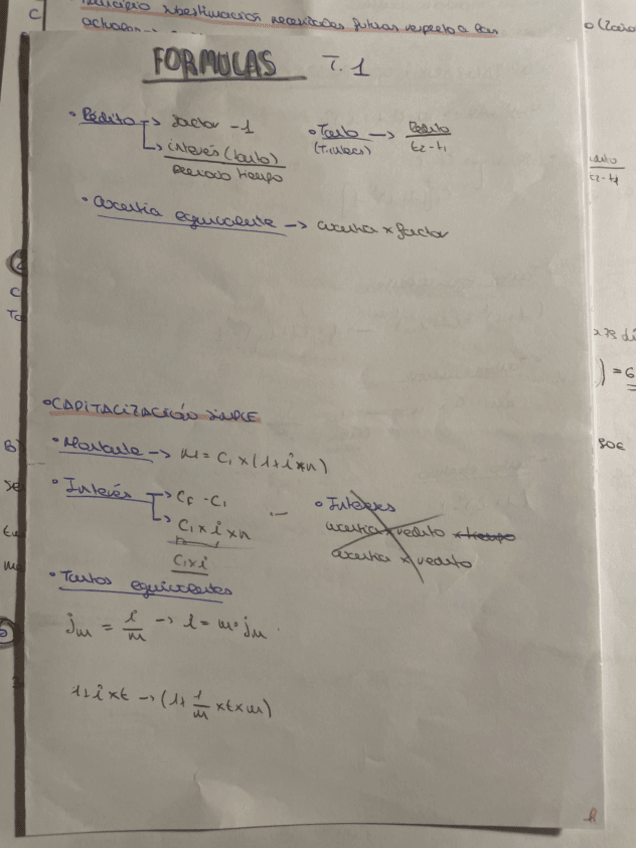 Principio subestimación necesidades futuras respecto a las
actuales
FORMULAS T. 1
• Rédito → factor - 1
↳ interés (tanto)
periodo tiempo
• Tanto → Rédito
(T. interés) t2 - t1
• Cuantía equivalente → cuantía x factor
• CAPITALIZACIÓN SIMPLE
• Montante → M = C1 x (1 + i x n)
• Interés → CF - C1
↳ C1 x i x n
C1 x i
• Intereses
cuantía x rédito x tiempo
cuantía x rédito
• Tantos equivalentes
jm = i/m → i = m · jm
1 + i x t → (1 + 1/m x t x m)
t2 - t1
x 73 di
) = 6